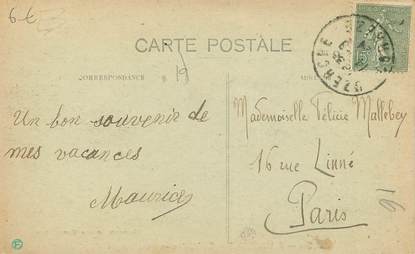 6€
CARTE POSTALE
CORRESPONDANCE
19
Un bon souvenir de
mes vacances
Maurice
UZERCHE
Mademoiselle Félicie Mallebey
16 rue Linné
Paris